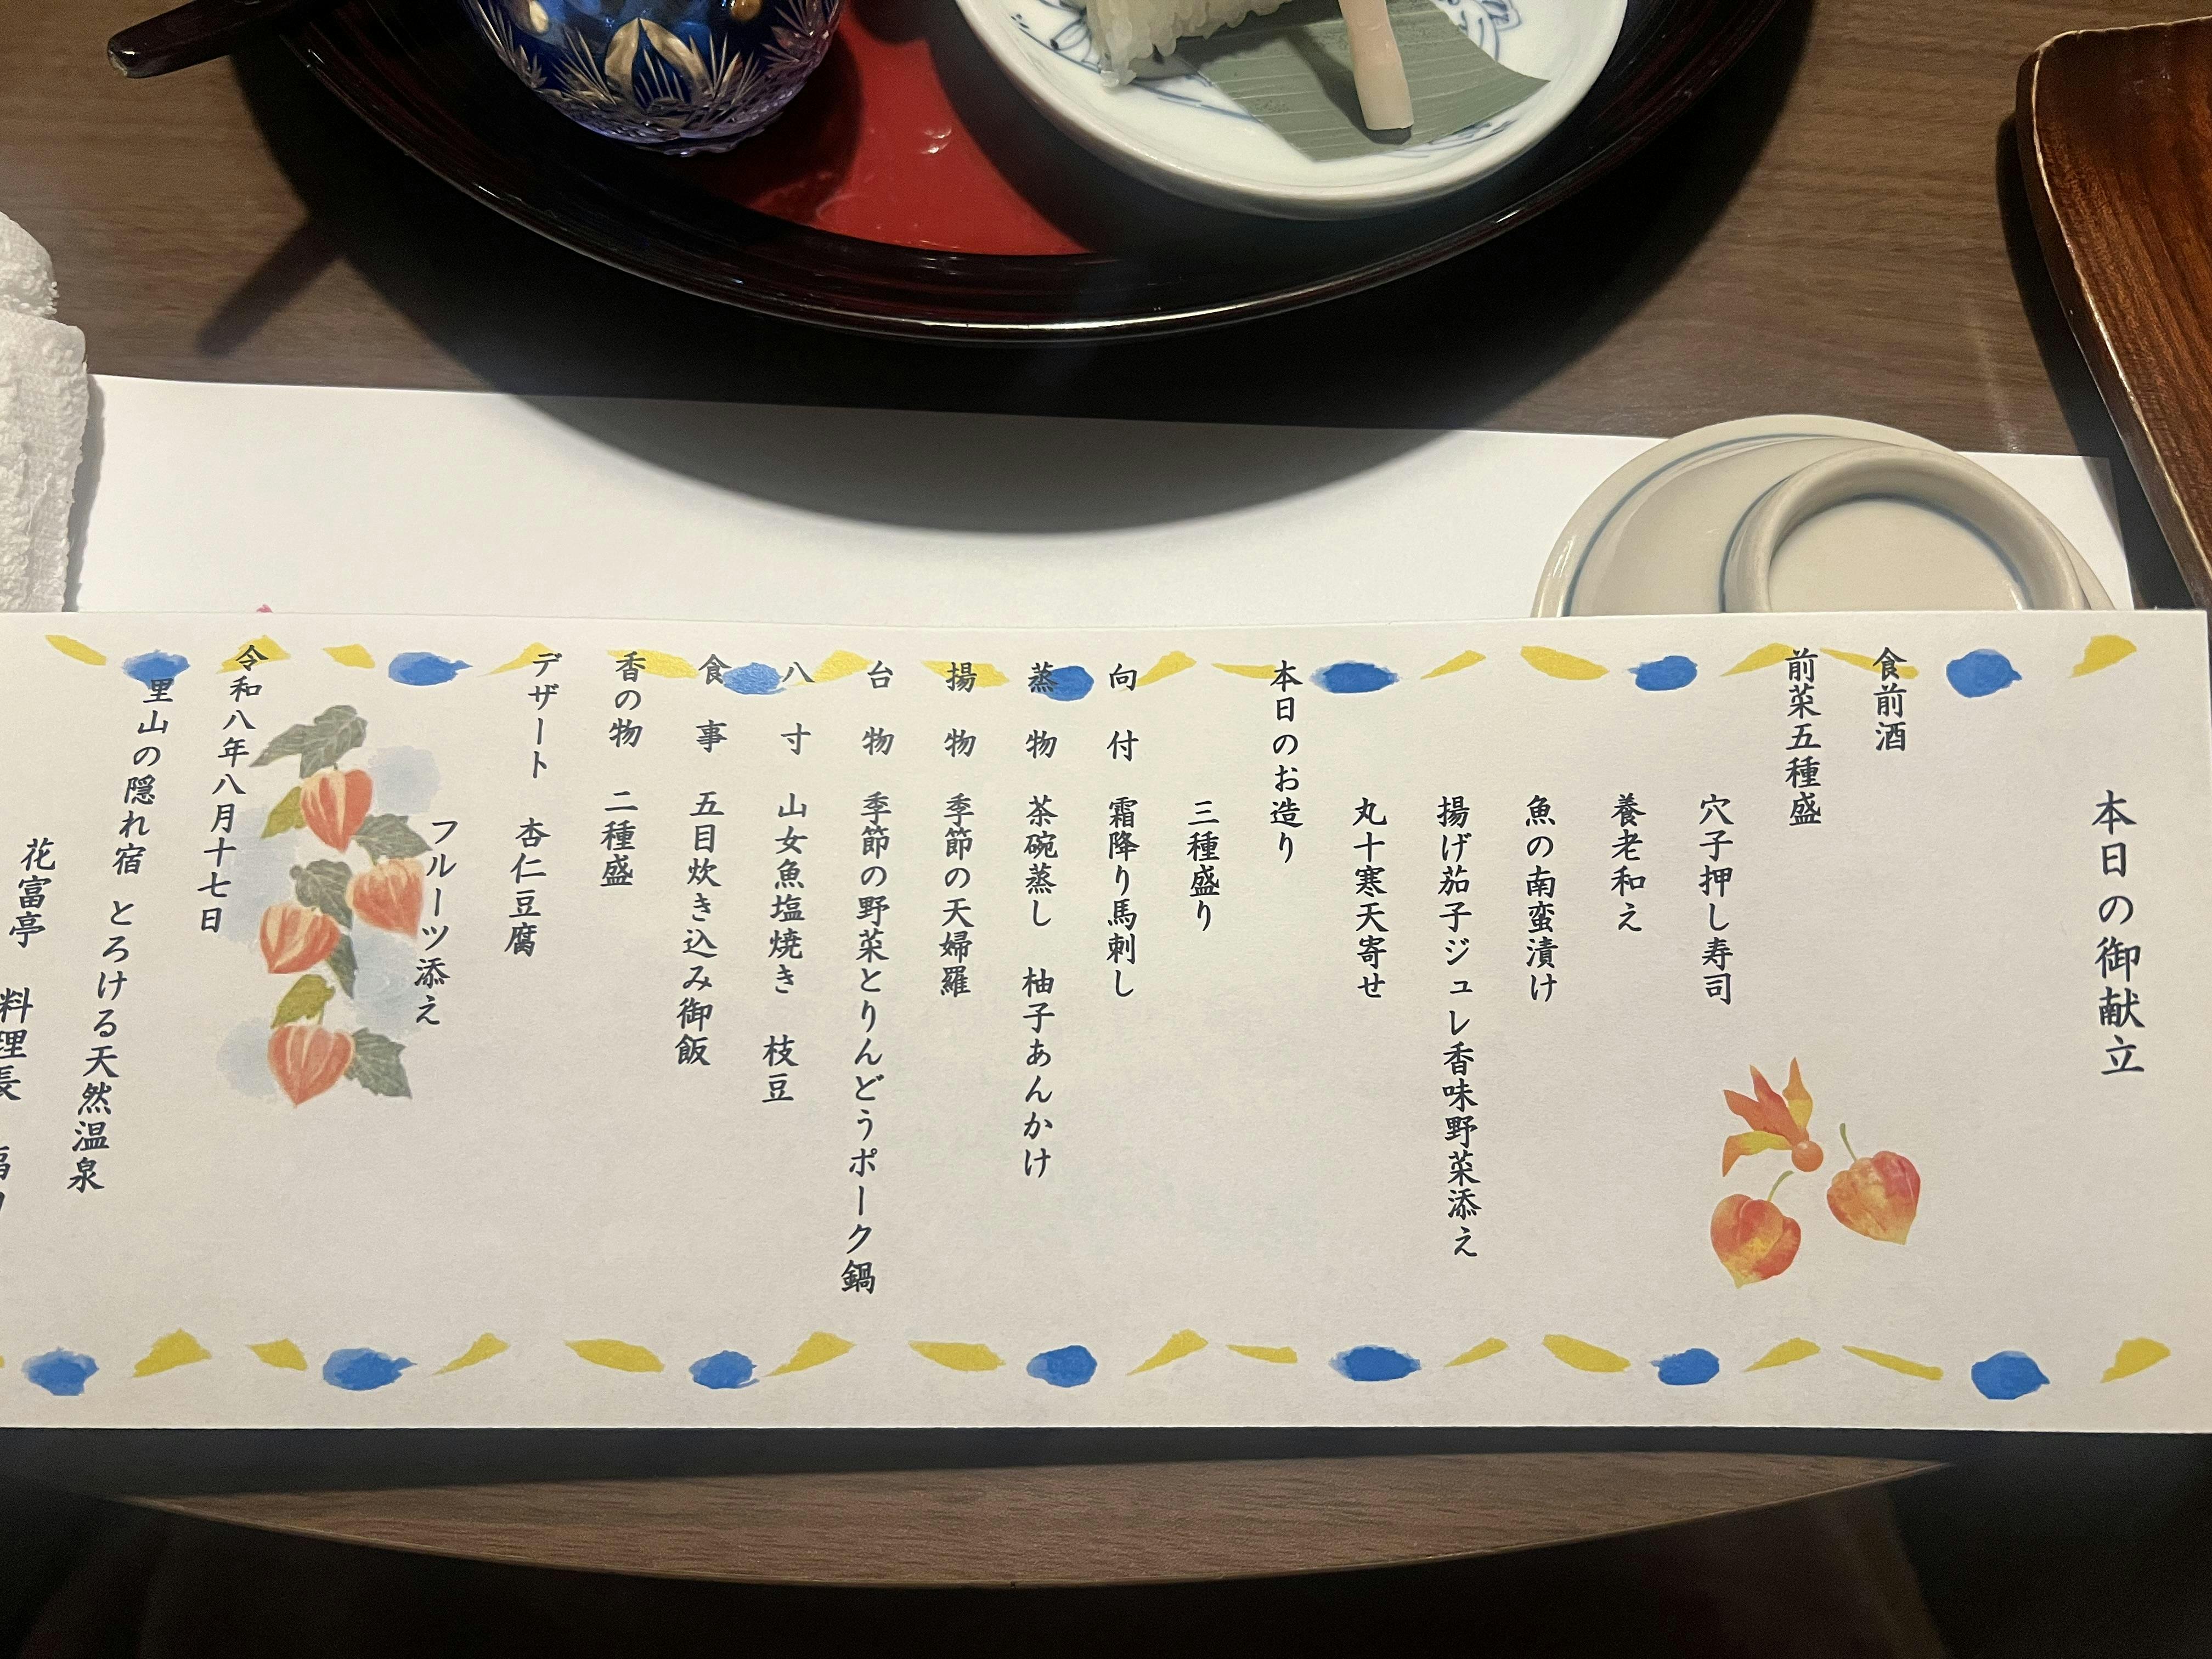 本日の御献立
食前酒
前菜五種盛
穴子押し寿司
養老和え
魚の南蛮漬け
揚げ茄子ジュレ香味野菜添え
丸十寒天寄せ
本日のお造り
三種盛り
向付 霜降り馬刺し
蒸物 茶碗蒸し 柚子あんかけ
揚物 季節の天婦羅
台物 季節の野菜とりんどうポーク鍋
八寸 山女魚塩焼き 枝豆
食事 五目炊き込み御飯
香の物 二種盛
デザート 杏仁豆腐
フルーツ添え
令和八年八月十七日
里山の隠れ宿 とろける天然温泉
花富亭 料理長